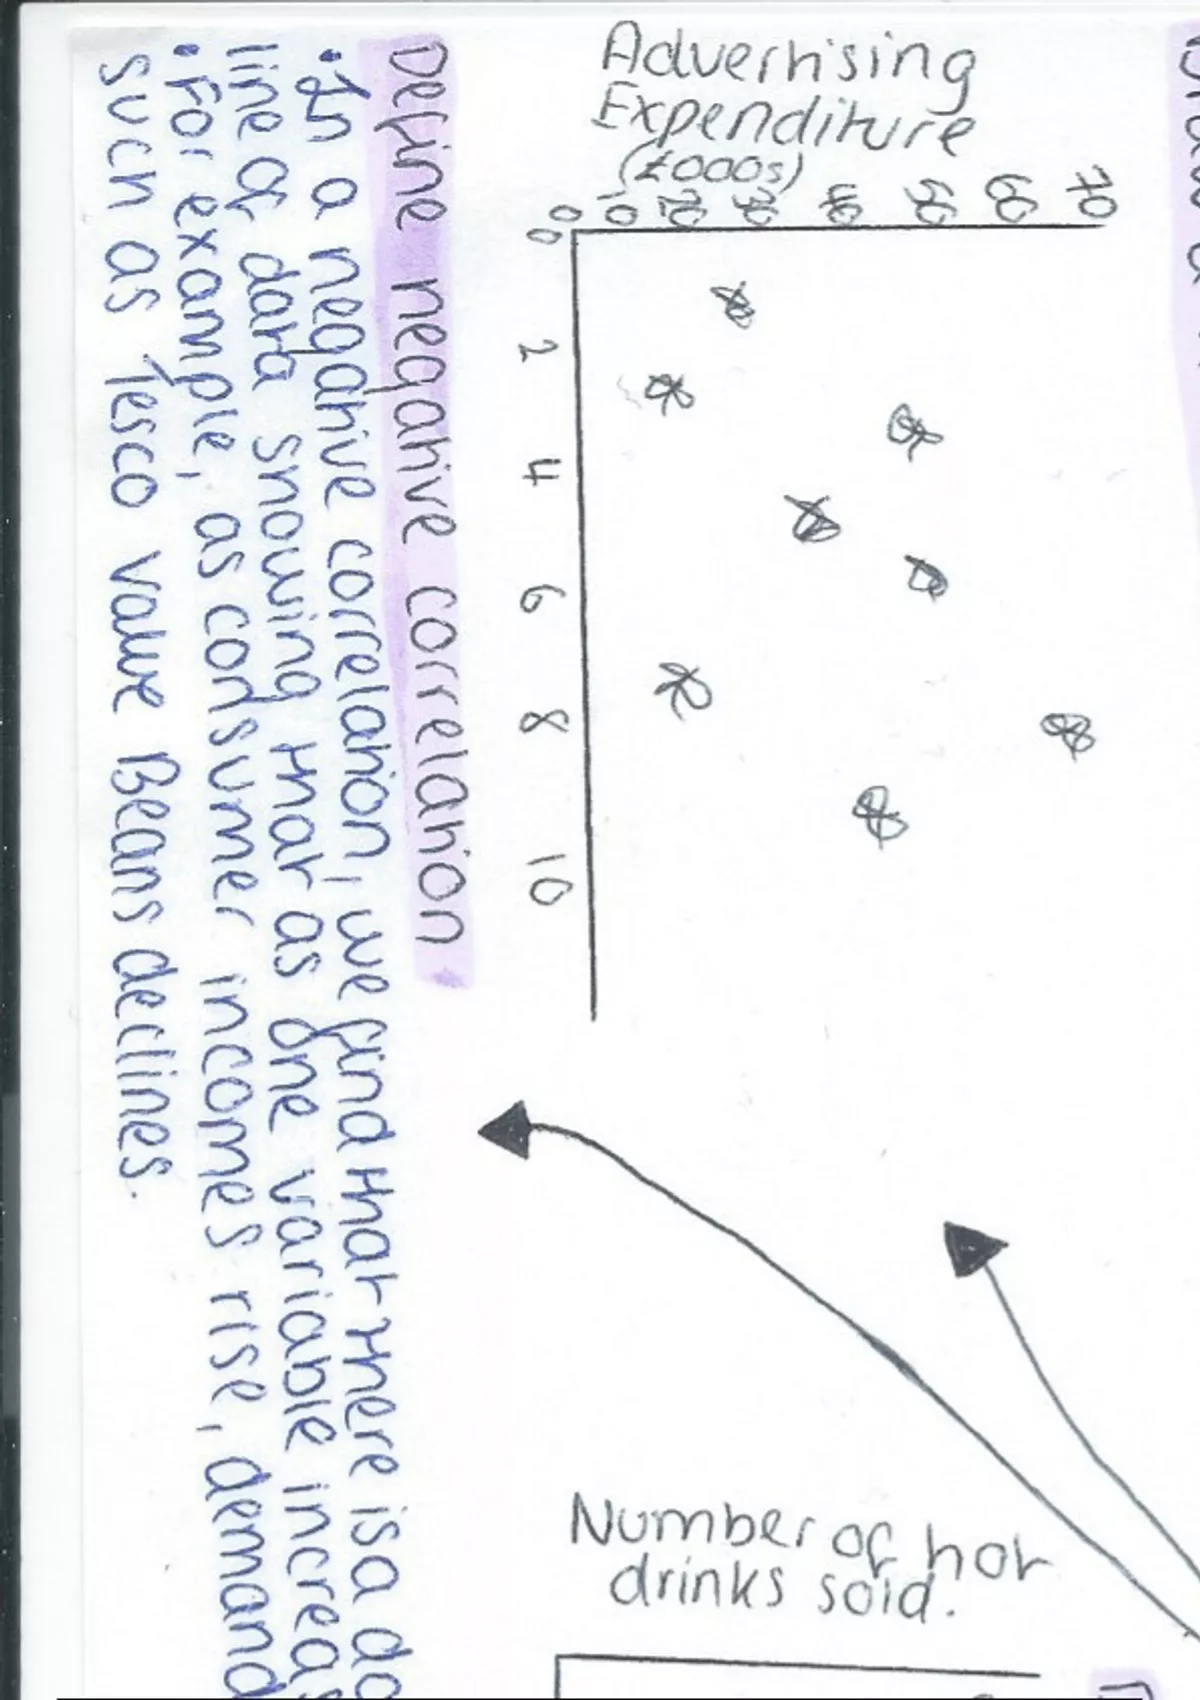 Advertising
Expenditure
(£000s)
70
60
50
40
30
20
10
0
0 2 4 6 8 10
Number of hot
drinks sold.
Define negative correlation
• In a negative correlation, we find that there is a
line of data showing that as one variable
• For example, as consumer incomes rise, demand
such as Tesco value Beans declines.